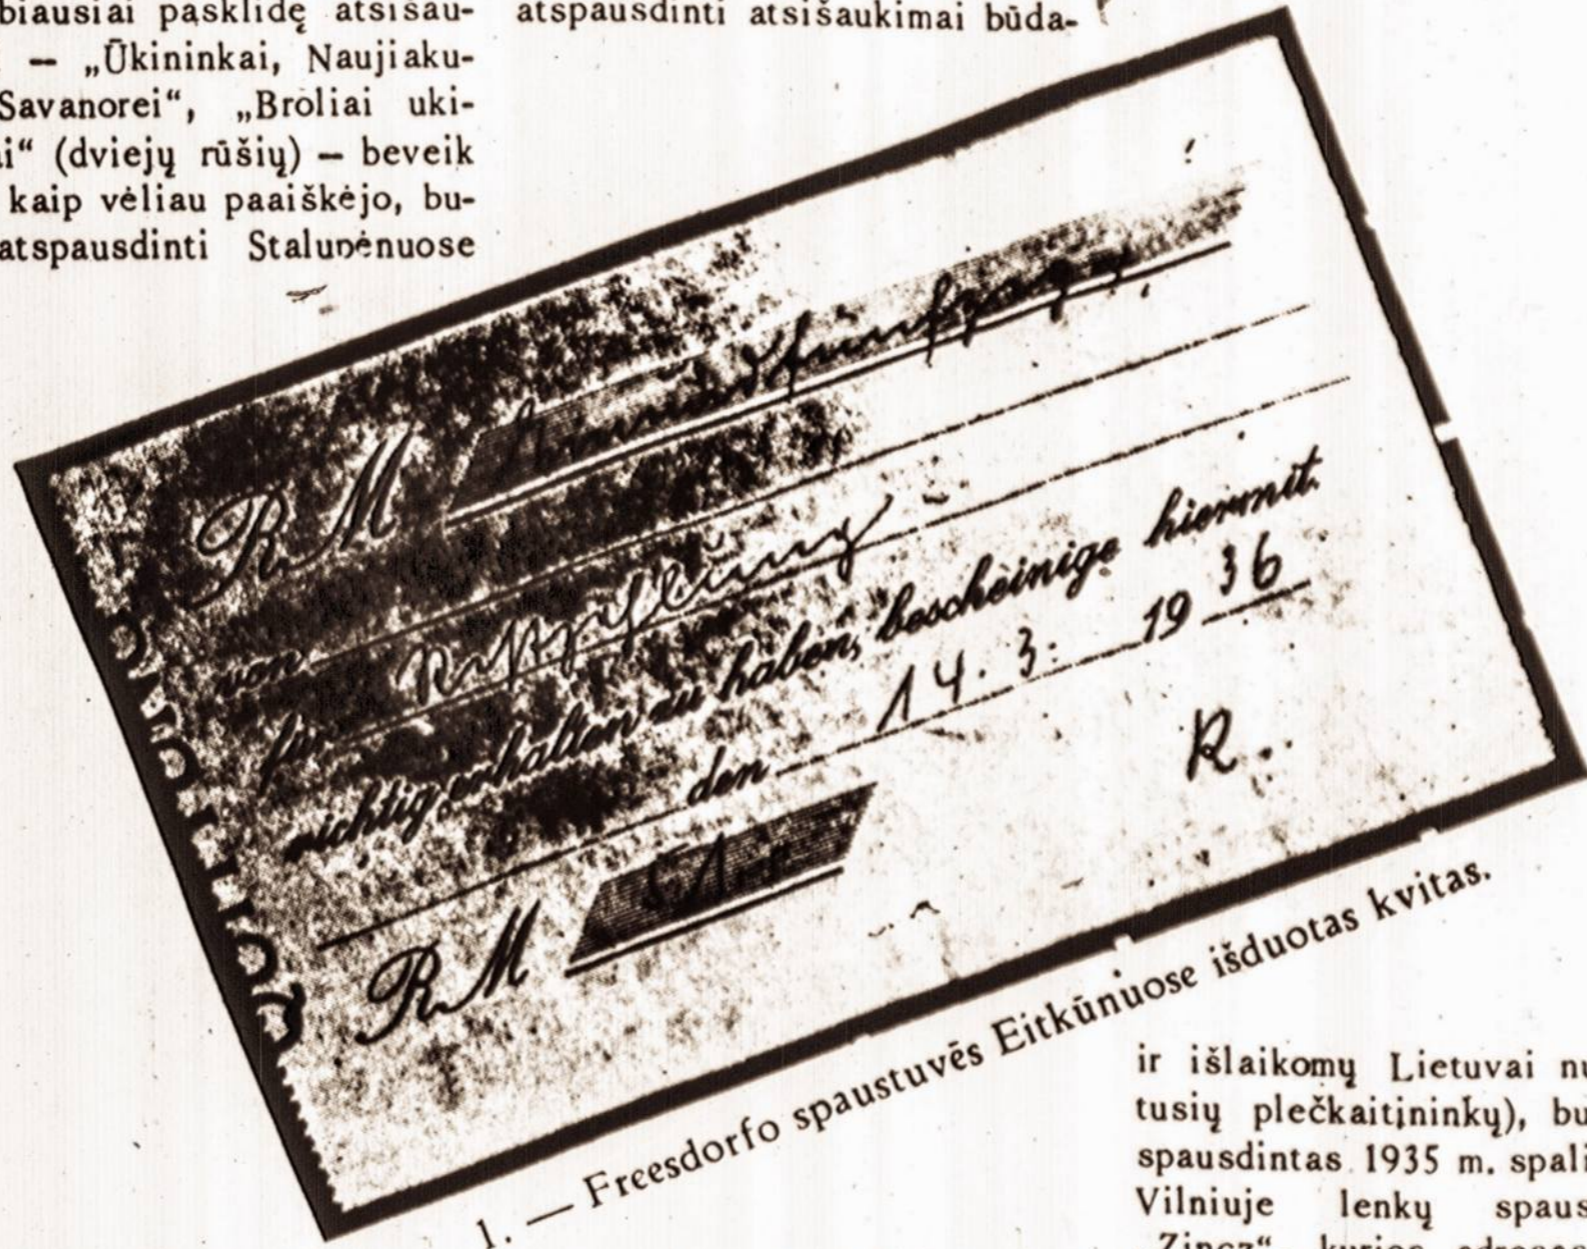 biausiai pasklidę atsišau-
– „Ūkininkai, Naujiaku-
Savanorei“, „Broliai uki-
ai“ (dviejų rūšių) – beveik
kaip vėliau paaiškėjo, bu-
atspausdinti Stalupėnuose
atspausdinti atsišaukimai būda-
RM Einundfünfzig
von
für Restzahlung
richtig erhalten zu haben, bescheinige hiermit.
den 14. 3. 1936
R.
RM 51.-
1. — Freesdorfo spaustuvės Eitkūnuose išduotas kvitas.
ir išlaikomų Lietuvai nu
tusių plečkaitininkų), bu
spausdintas 1935 m. spali
Vilniuje lenkų spaus
„Zincz“, kurios